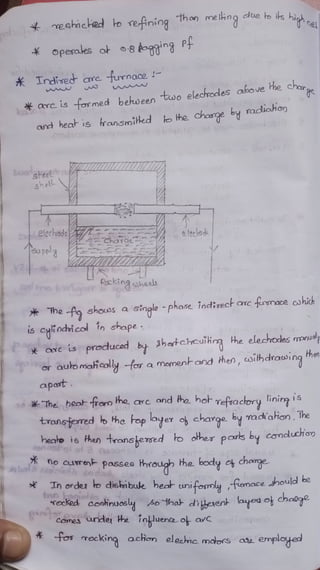 * restricted to refining than melting due to its high
* operates at 0.8 lagging Pf
* Indirect arc furnace :-
* arc is formed between two electrodes above the charge
and heat is transmitted to the charge by radiation
steel
shell
electrode
charge
electrode
supply
Rocking wheels
* The fig shows a single-phase indirect arc furnace which
is cylindrical in shape.
* arc is produced by shortcircuiting the electrodes manually
or automatically for a moment and then, withdrawing them
apart.
* The heat from the arc and the hot refractory lining is
transferred to the top layer of charge by radiation. The
heat is then transferred to other parts by conduction
* no current passes through the body of charge
* In order to distribute heat uniformly, furnace should be
rocked continuously so that different layers of charge
comes under the influence of arc
* for rocking action electric motors are employed